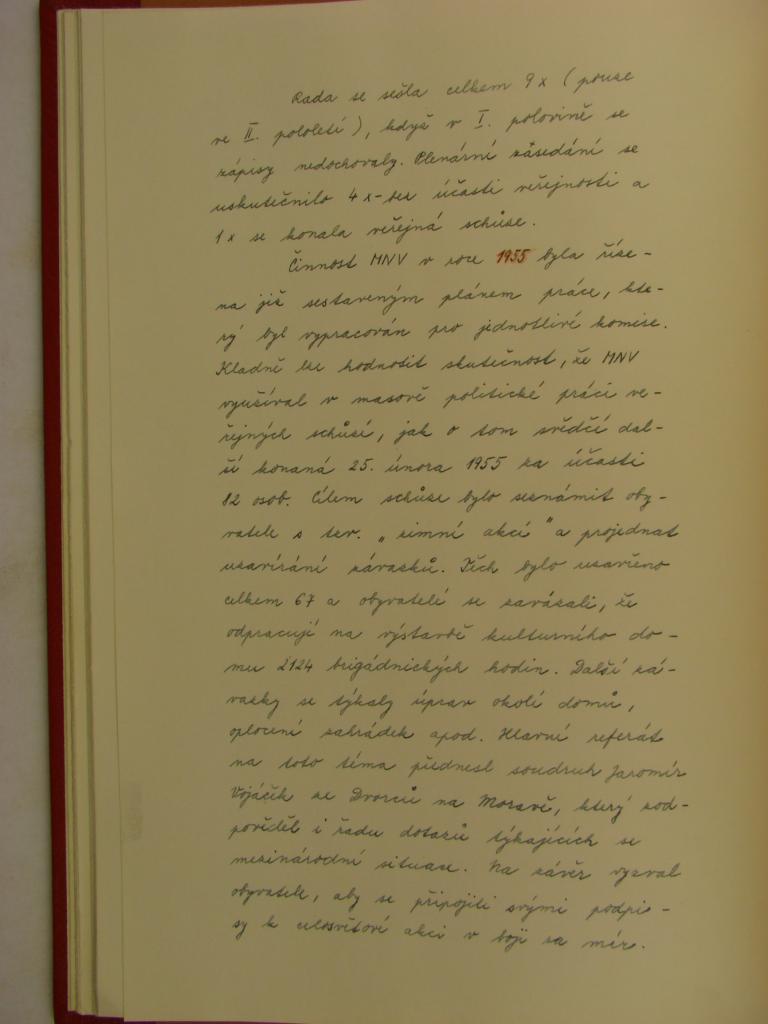 Rada se sešla celkem 9 x ( pouze
ve II. pololetí ), když v I. polovině se
zápisy nedochovaly. Plenární zásedání se
uskutečnilo 4 x - bez účasti veřejnosti a
1 x se konala veřejná schůze.
Činnost MNV v roce 1955 byla říze -
na již sestaveným plánem práce, kte-
rý byl vypracován pro jednotlivé komise.
Kladně lze hodnotit skutečnost, že MNV
využíval v masově politické práci ve-
řejných schůzí, jak o tom svědčí dal-
ší konaná 25. února 1955 za účasti
82 osob. Cílem schůze bylo seznámit oby-
vatele s tzv. „ zimní akcí " a projednat
uzavírání závazků. Těch bylo uzavřeno
celkem 67 a obyvatelé se zavázali, že
odpracují na výstavbě kulturního do -
mu 2124 brigádnických hodin. Další zá-
vazky se týkaly úprav okolí domů,
oplocení zahrádek apod. Hlavní referát
na toto téma přednesl soudruh Jaromír
Vojáčik ze Dvorců na Moravě, který zod-
pověděl i řadu dotazů týkajících se
mezinárodní situace. Na závěr vyzval
obyvatele, aby se připojili svými podpi -
sy k celosvětové akci v boji za mír.